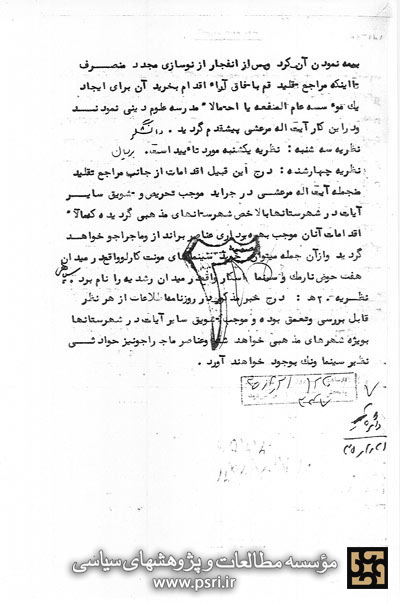 بیمه نمودن آن کرد و پس از انفجار از نوسازی مجدد منصرف
تا اینکه مراجع تقلید قم باتفاق آراء اقدام بخرید آن برای ایجاد
یک موسسه عام المنفعه یا احتمالا مدرسه علوم دینی نمودند
و در این کار آیت اله مرعشی پیشقدم گردید. دانشگر
نظریه سه شنبه: نظریه یکشنبه مورد تائید است.
نظریه چهارشنبه: درج این قبیل اقدامات از جانب مراجع تقلید
منجمله آیت اله مرعشی در جراید موجب تحریص و تشویق سایر
آیات در شهرستانها بالاخص شهرستانهای مذهبی گردیده که مآلا
اقدامات آنان موجب بهره برداری عناصر برانداز و ماجراجو خواهد
گردید و از آن جمله میتوان سینماهای مونت کارلو واقع در میدان
هفت حوض نارمک و سینما اسکار واقع در میدان رشدیه را نام برد.
نظریه ۲۰ه: درج خبر مذکور در روزنامه اطلاعات از هر نظر
قابل بررسی و تعمق بوده و موجب تشویق سایر آیات در شهرستانها
بویژه شهرهای مذهبی خواهد شد و عناصر ماجراجو نیز حوادثی
نظیر سینما ونک بوجود خواهند آورد.
مؤسسه مطالعات و پژوهشهای سیاسی
www.psri.ir